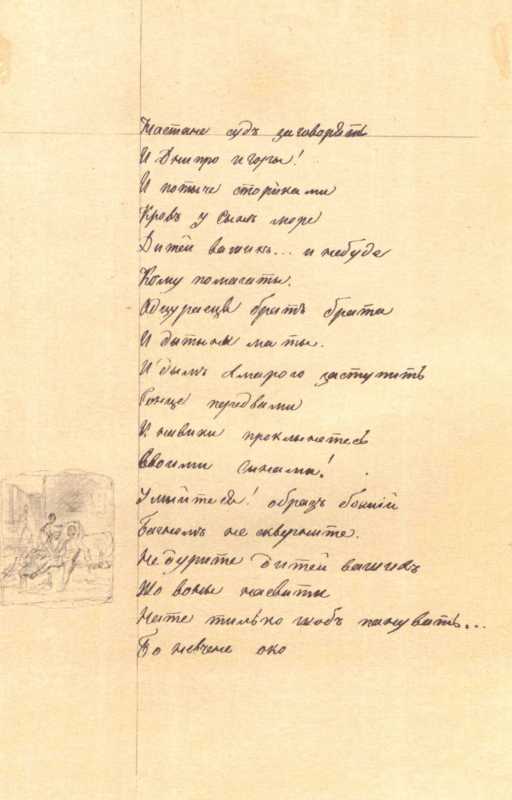 Настане судъ заговорять
И Днипро и горы!
И потече сториками
Кровъ у сыне море
Дитей вашихъ... и небуде
Кому помагаты.
Одцураецця братъ брата
И дытыны маты.
И дымъ хмарою заступить
Сонце передвами
И навики проклянетесь
Своими сынамы!
Умыйтеся! образъ божій
Багномъ не скверныте.
Не дурыте дитей вашихъ
Що воны насвити
На те тилько щобъ пануватъ...
Бо невчене око